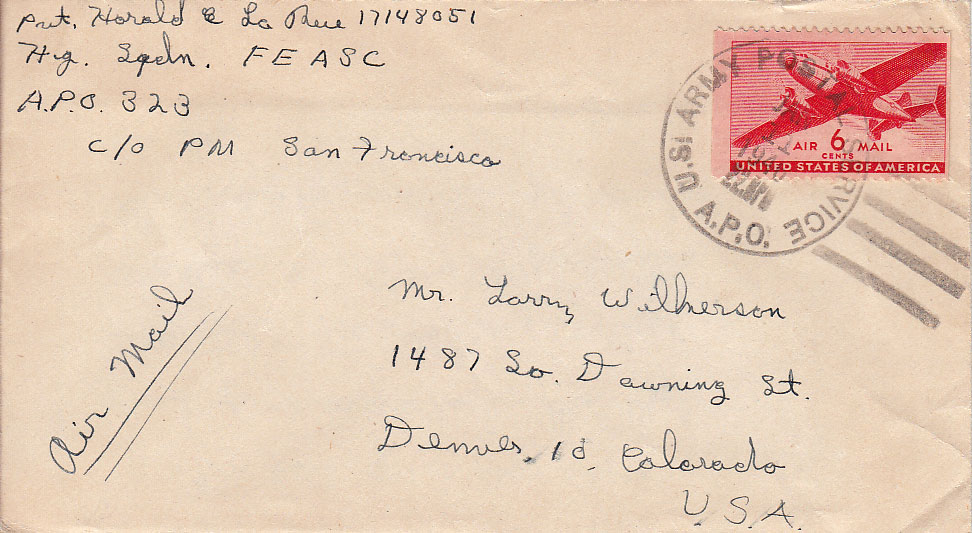 Pvt. Harold E La Rue 17148051
Hq. Sqdn. FEASC
A.P.O. 323
c/o PM San Francisco
U.S. ARMY POSTAL SERVICE
A.P.O.
1946
AIR 6 MAIL
CENTS
UNITED STATES OF AMERICA
Air Mail
Mr. Larry Wilkerson
1487 So. Downing St.
Denver, 10, Colorado
U.S.A.